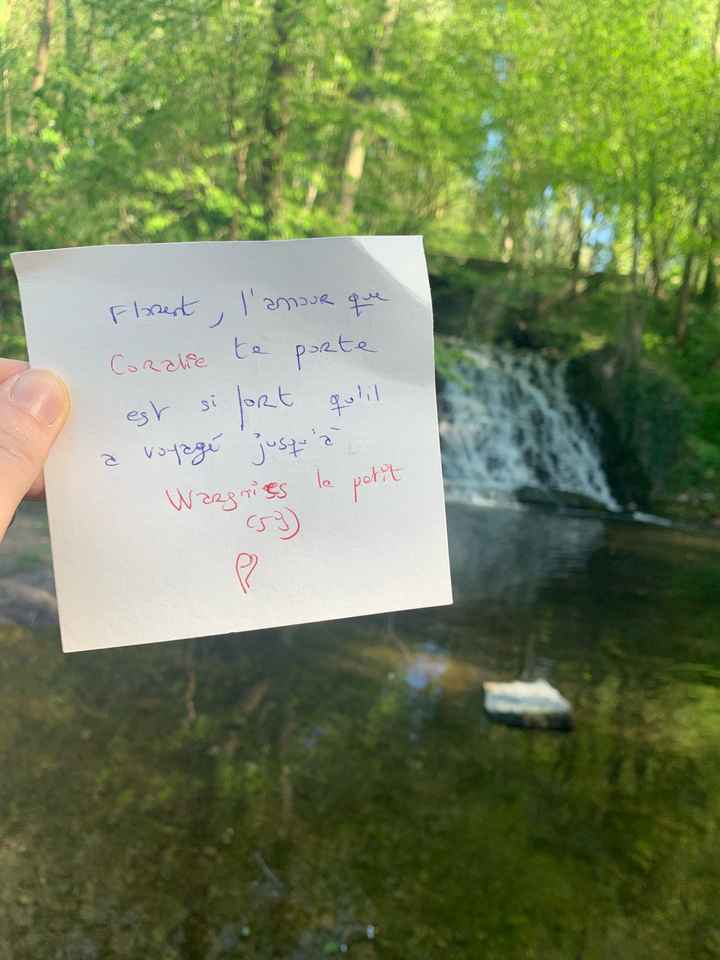 Florent, l'amour que
Coralie te porte
est si fort qu'il
a voyagé jusqu'à
Wargnies le petit
(59)